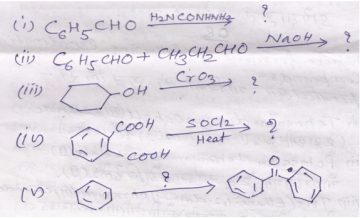 (i) C6H5CHO H2NCONHNH2 ?
(ii) C6H5CHO + CH3CH2CHO NaOH ?
(iii) OH CrO3 ?
(iv) COOH COOH SOCl2 Heat ?
(v) ? O